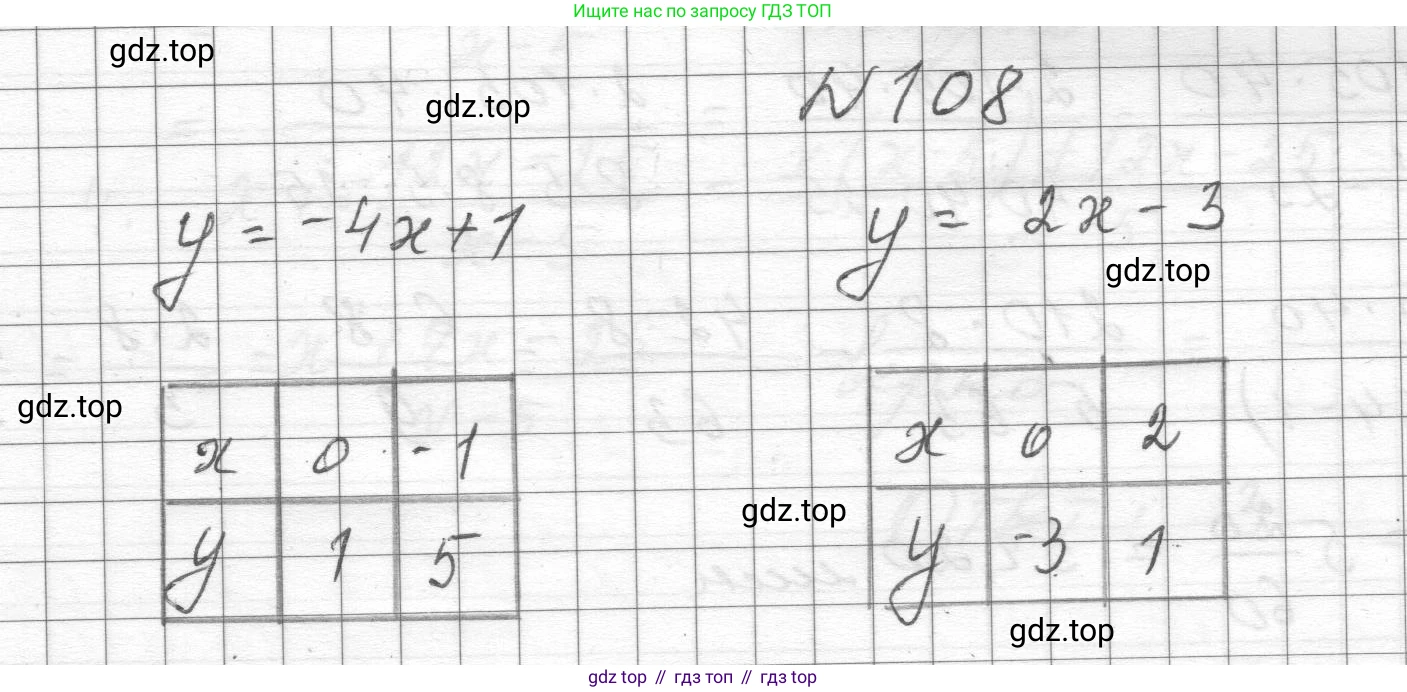 Ищите нас по запросу ГДЗ ТОП
gdz.top
gdz.top
N108
y = -4x+1
y = 2x - 3
gdz.top
gdz.top
x 0 -1
y 1 5
x 0 2
y -3 1
gdz.top
gdz.top
gdz.top // гдз топ // гдз top